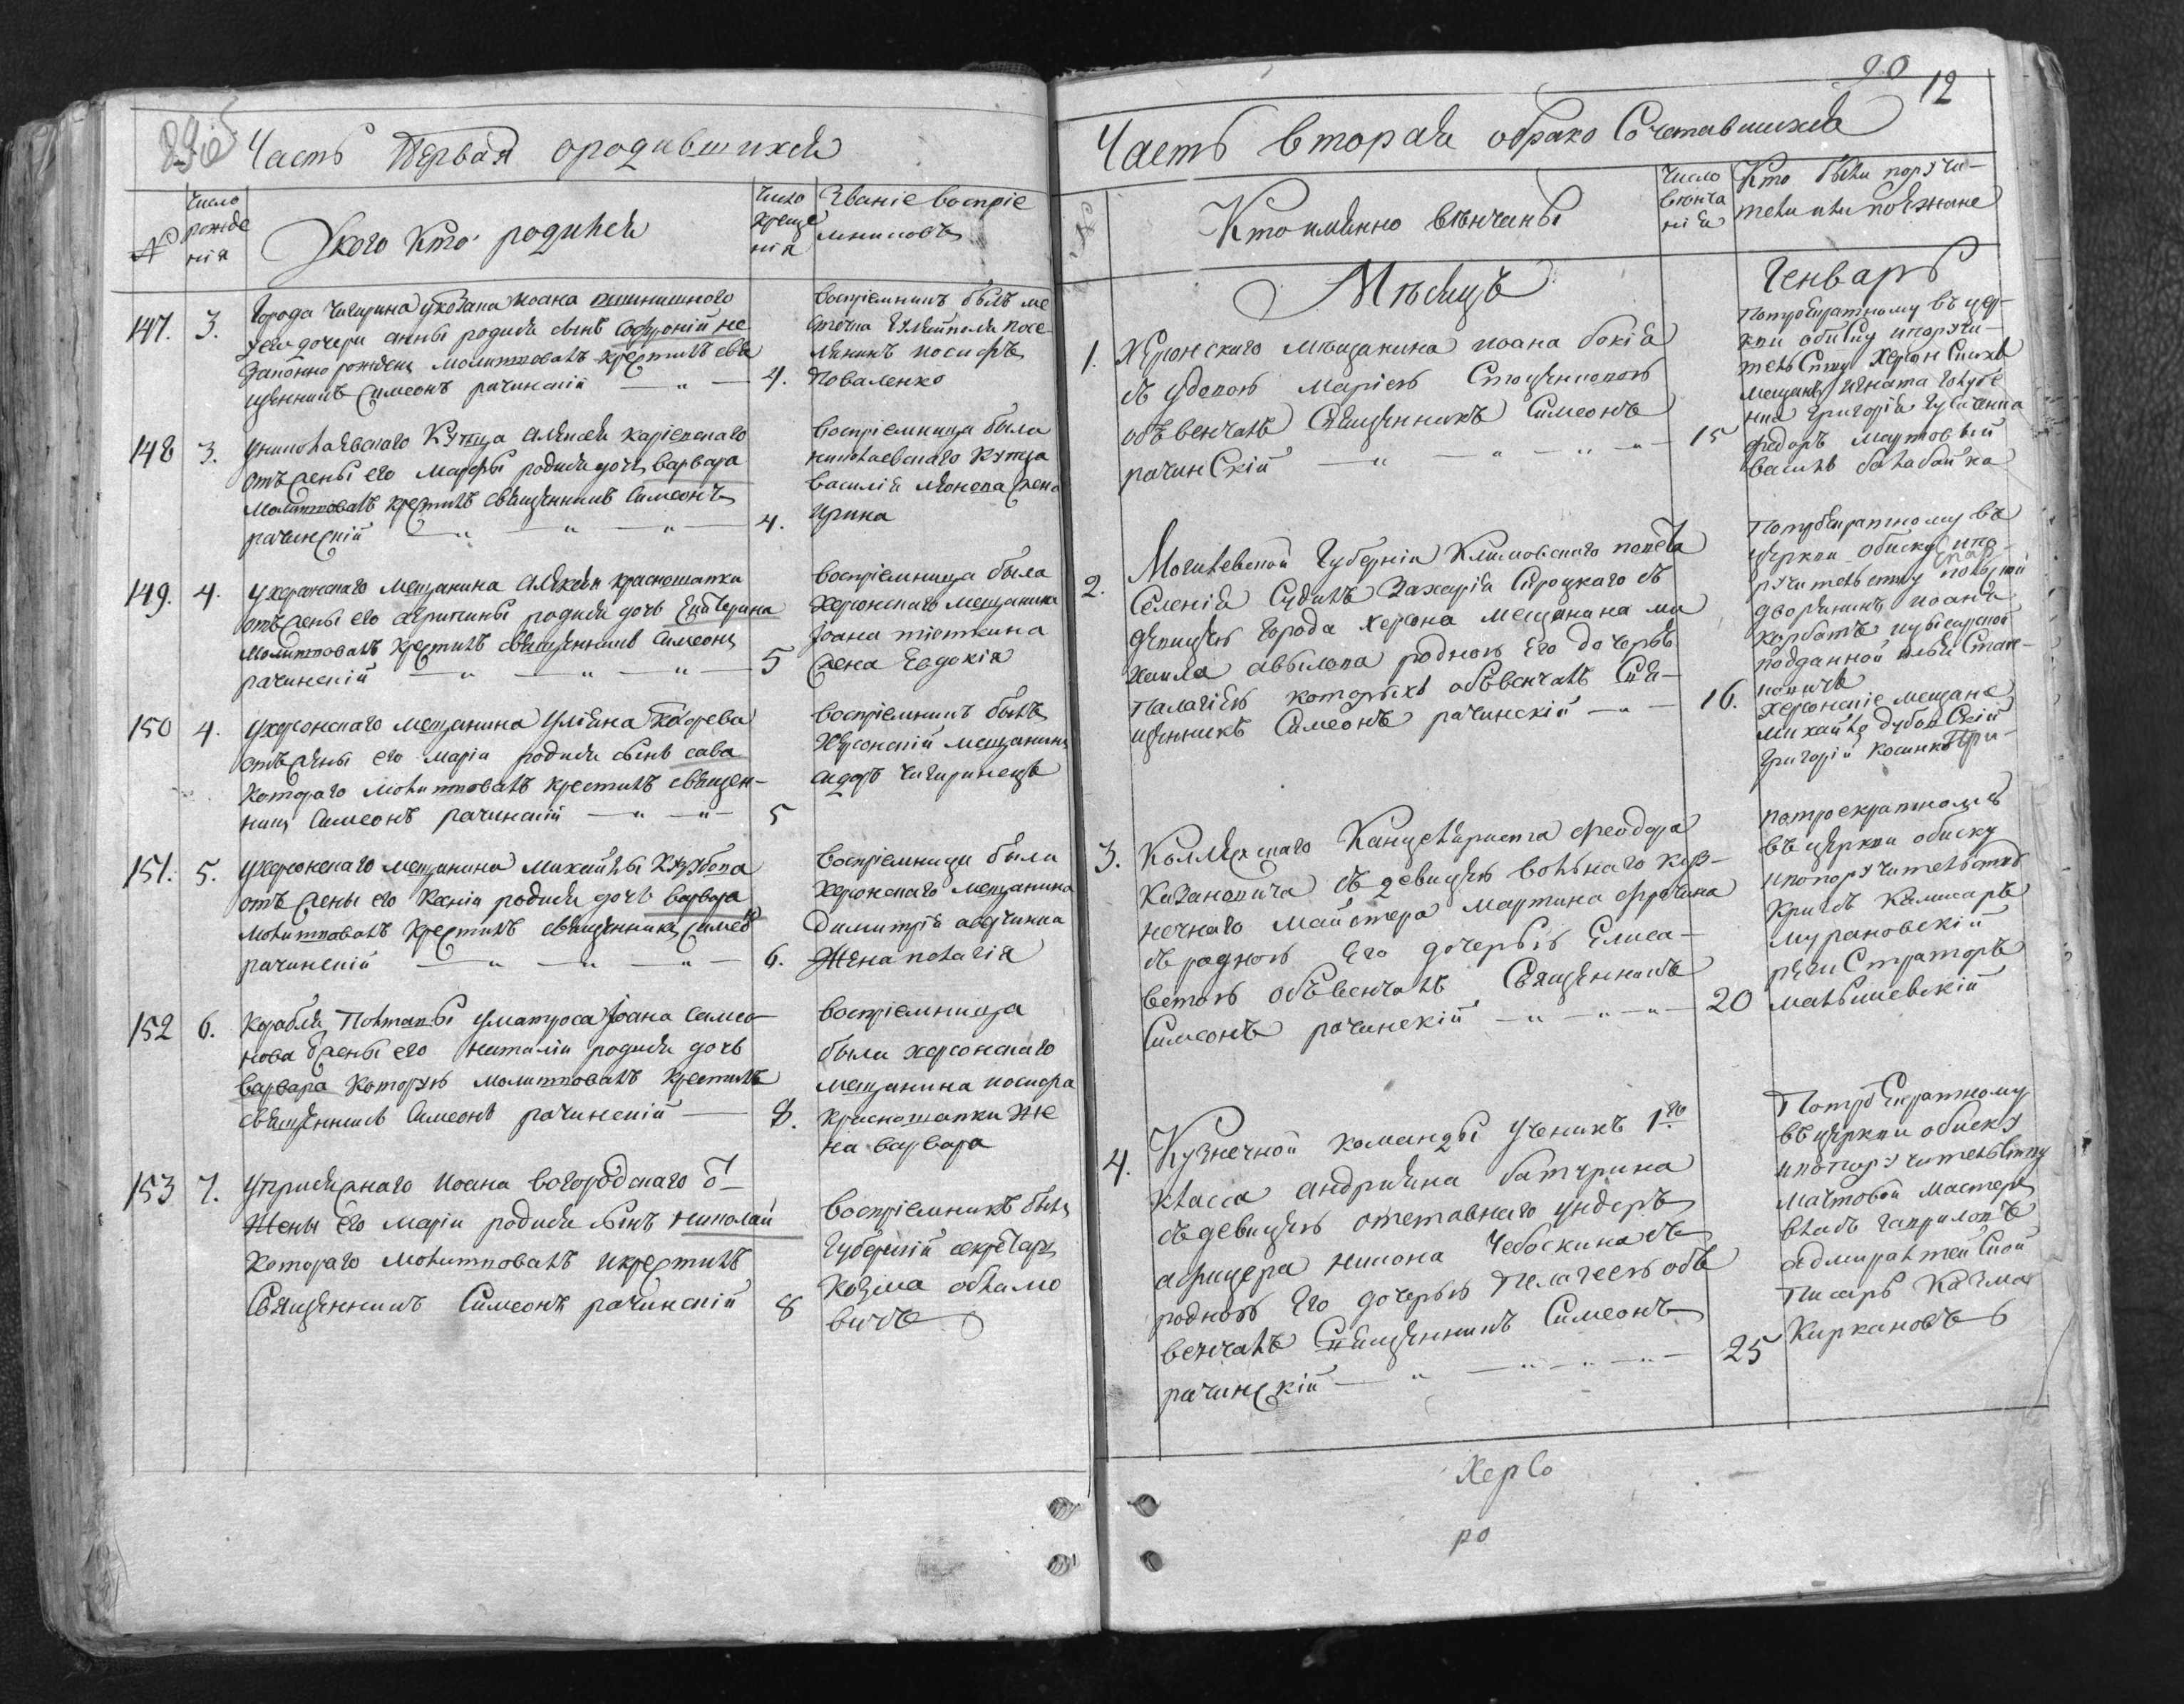 Часть Первая о родившихся
№
Число рожде нія
У кого кто родился
Число креще ніа
Званіе воспріе мниковъ
147. 3. Города Чигирина у козака Иоана
его дочери анны родился сынъ Софроній не
законно рожденъ молитвовалъ крестилъ свя
щенникъ Симеонъ рачинскій — „ — 4.
воспріемникъ былъ ме
стечка посе
лянинъ иосифъ
Поваленко
148 3. У николаевскаго Купца алексея
отъ жены его Марфы родися дочь варвара
молитвовалъ крестилъ священникъ Симеонъ
рачинскій — „ — „ — „ — 4.
воспріемница была
николаевскаго Купца
василія жена
ирина
149. 4. У херсонскаго мещанина алексея красношапки
отъ жены его агрипины родися дочь Екатерина
молитвовалъ крестилъ священникъ Симеонъ
рачинскій — „ — „ — „ — 5
воспріемница была
Херсонскаго мещанина
Іоана
жена Евдокія
150 4. У херсонскаго мещанина
отъ жены его маріи родися сынъ сава
котораго молитвовалъ крестилъ священ-
никъ Симеонъ рачинскій — „ — „ — 5
воспріемникъ былъ
Херсонскій мещанинъ
сидоръ чигиринецъ
151. 5. У херсонскаго мещанина Михайлы
отъ жены его Ксеніи родися дочь варвара
молитвовалъ крестилъ священникъ симеонъ
рачинскій — „ — „ — „ — 6.
воспріемница была
Херсонскаго мещанина
димитрія
жена полагія
152 6. Корабля Полтавы у матроса Іоана Семео-
нова жены его наталіи родися дочь
варвара которую молитвовалъ крестилъ
священникъ Симеонъ рачинскій — 8.
воспріемница
была херсонскаго
мещанина иосифа
красношапки же
на варвара
153 7. У присяжнаго Иоана Богородскаго
жены его маріи родися сынъ николай
котораго молитвовалъ и крестилъ
Священникъ Симеонъ рачинскій 8
воспріемникъ былъ
Губерскій секретарь
Козма
вичъ
90
12
Часть вторая о брако Сочетавшихся
№
Кто имянно венчаны
Число венча нія
Кто были поручи- тели или поезжане
Месяцъ Генварь
1. Херсонскаго мещанина иоана бокія
съ вдовою маріею
объвенчалъ Священникъ Симеонъ
рачинскій — „ — „ — „ — 15
По троекратному въ цер-
кви обиску и поручи-
тельству Херсонскихъ
мещанъ игната
Григорія
федоръ
василь балабайка
2. Могилевской Губерніи Климовскаго повета
Селенія Захарія съ
девицею города херсона мещанина ми
хаила родною его дочерью
Палагією которыхъ объвенчалъ Свя-
щенникъ Симеонъ рачинскій — „ — 16.
По троекратному въ
церкви обиску и по
ручительству
дворянинъ иоанъ
подданной
херсонскіе мещане
михайло дубовскій
Григорій
3. Коллежскаго Канцеляриста феодора
Казановича съ девицею вольнаго куз-
нечнаго майстера мартина
съ родною его дочерью Елиса-
ветою объвенчалъ Священникъ
Симеонъ рачинскій — „ — „ — „ — 20
по троекратному
въ церкви обиску
и по поручительству
Кригсъ Комисаръ
мурановскій
регистраторъ
мальшевскій
4. Кузнечной команды ученикъ 1го
класса андрияна батурина
съ девицею отставнаго ундеръ
афицера никона Чебоскина съ
родною его дочерью Пелагеею объ
венчалъ Священникъ Симеонъ
рачинскій — „ — „ — „ — 25
По троекратному
въ церкви обиску
и по поручительству
мачтовой мастеръ
власъ гавриловъ
адмиралтейской
Писарь Казма
Киркановъ
Херсо
ро